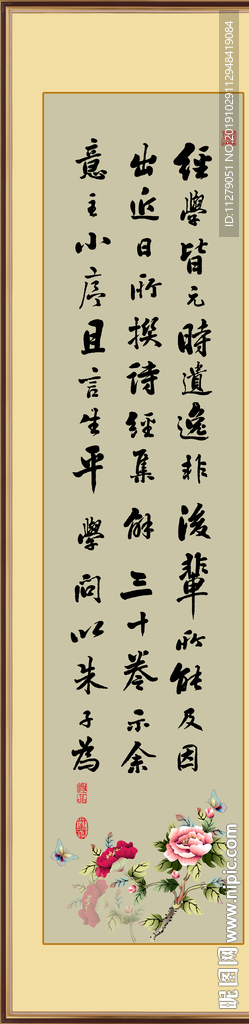 經學皆元時遺逸非後輩所能及因
出近日所撰詩經集解三十卷示余
意主小序且言生平學問以朱子為
ID:11279051 NO:20191029112948419084
昵图网 www.nipic.com